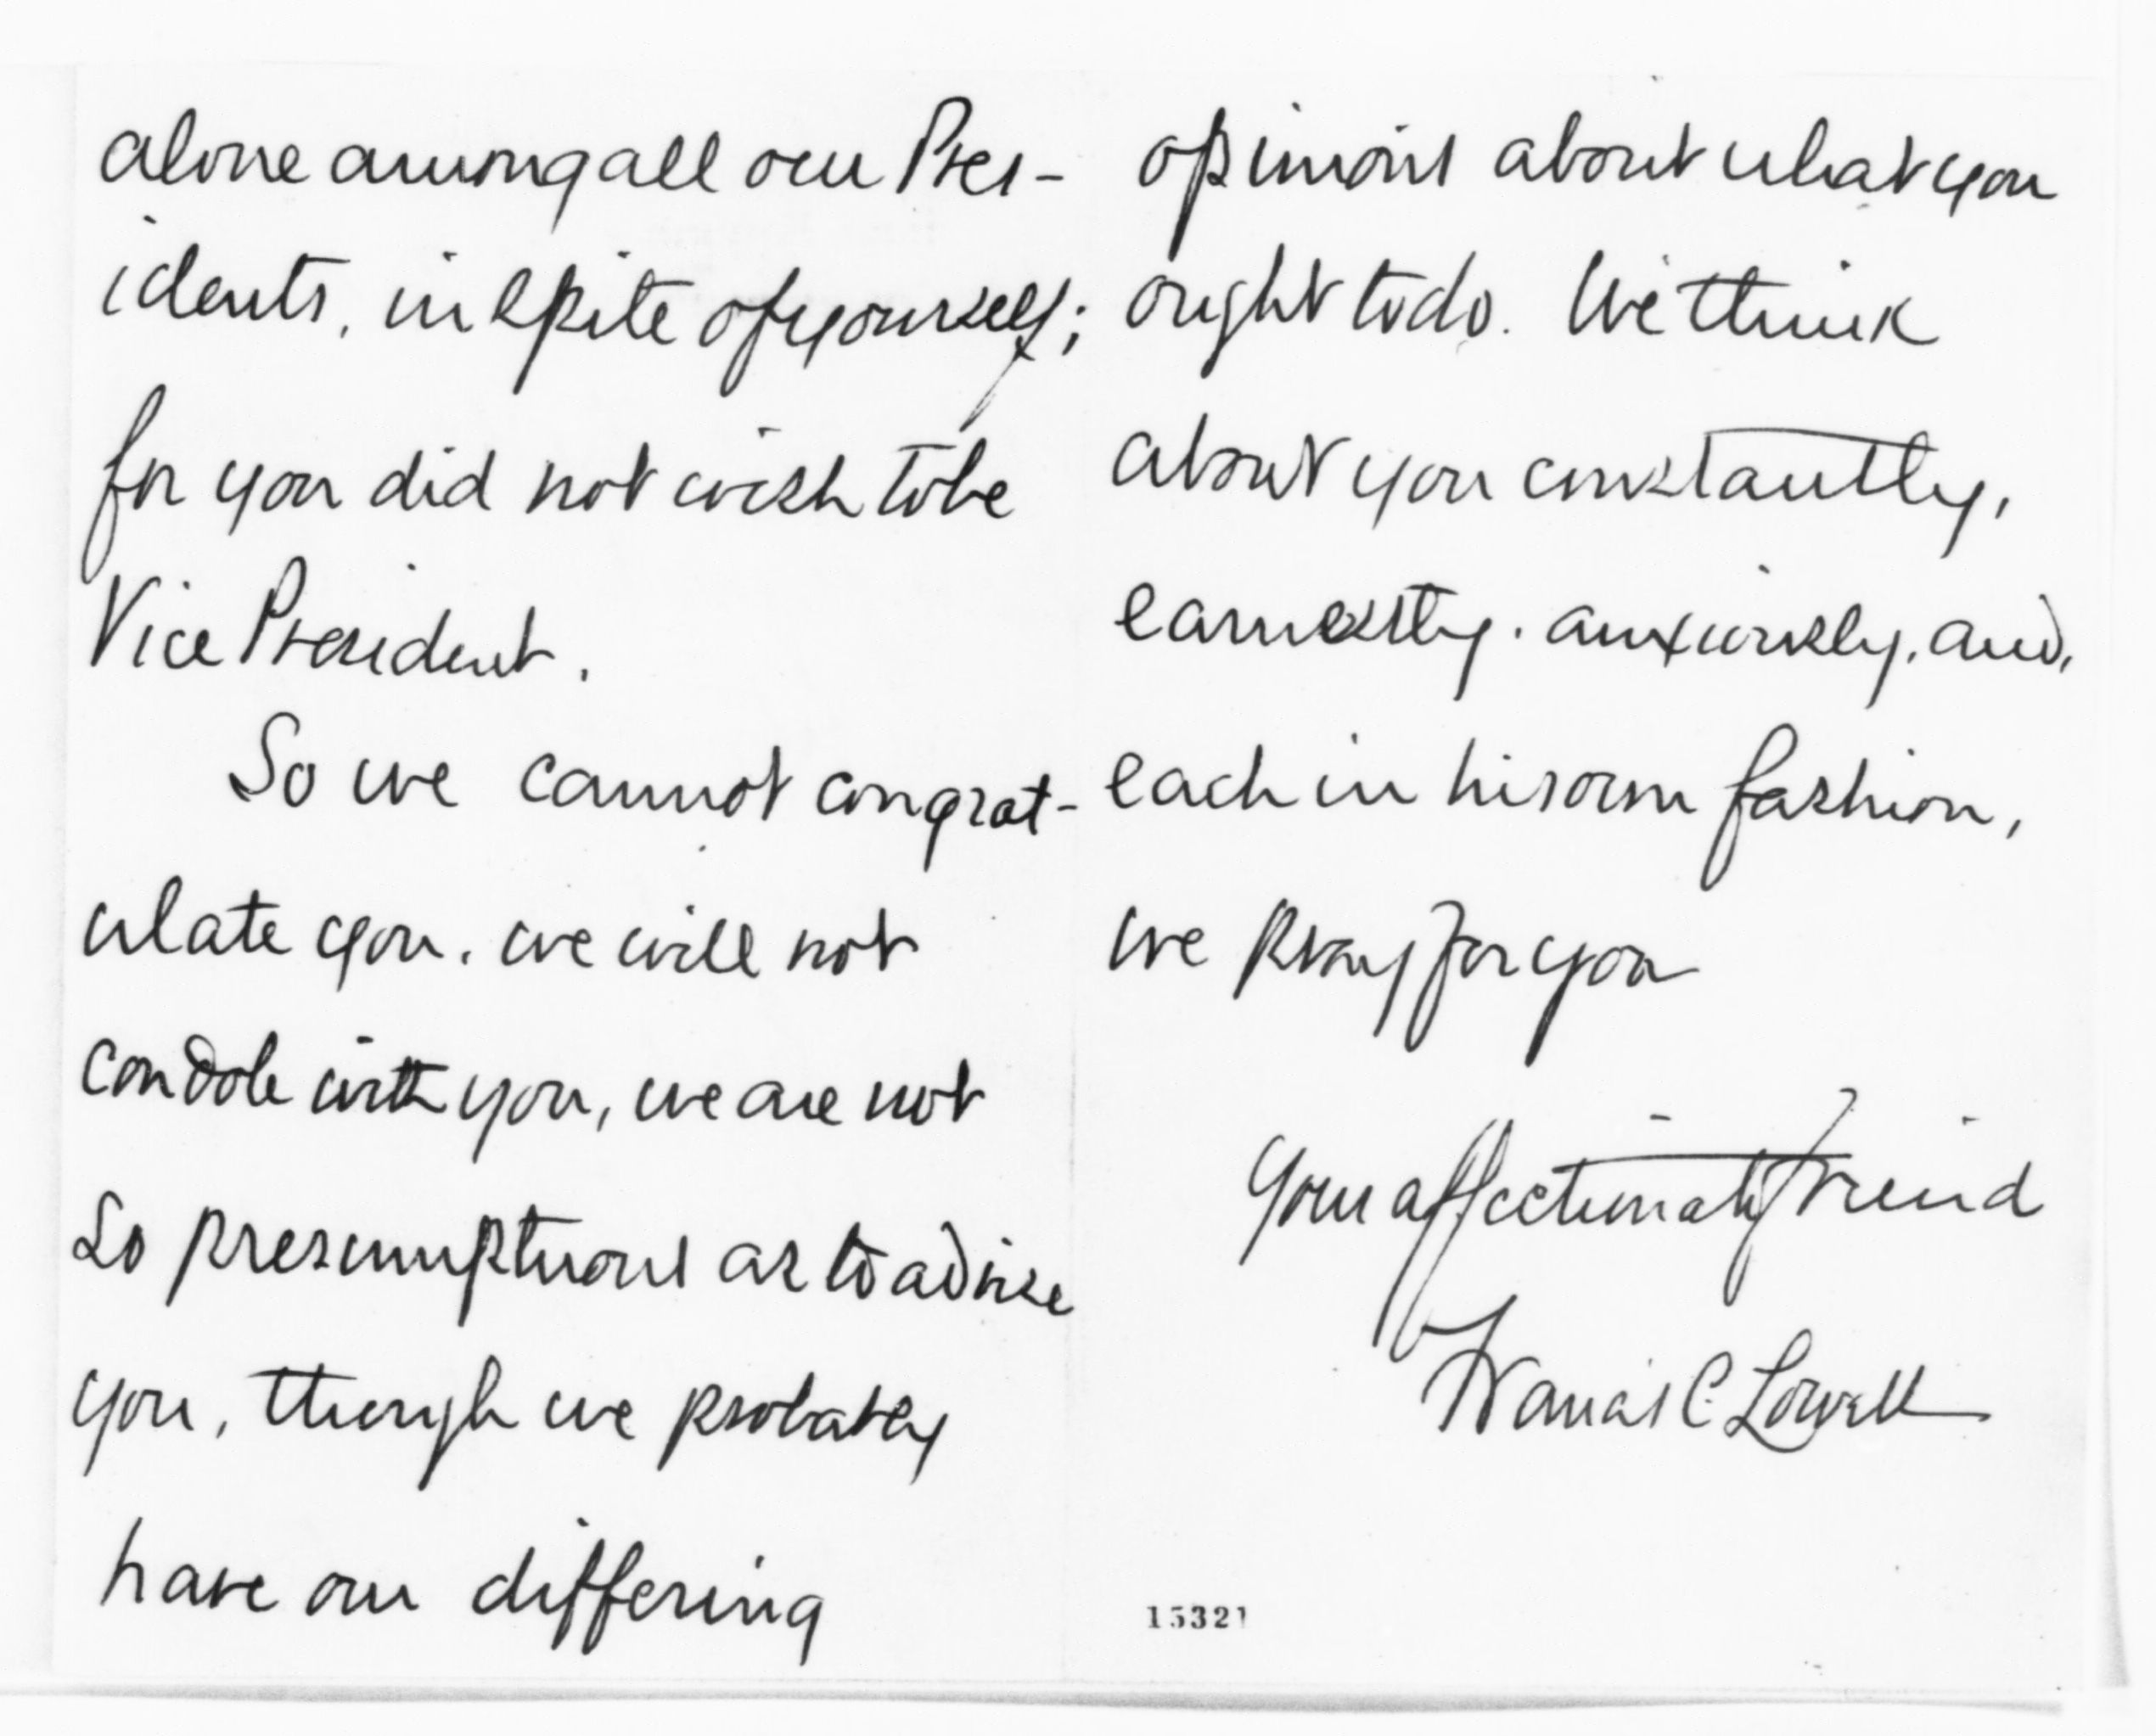 alone among all our Pres-
idents, in spite of yourself;
for you did not wish to be
Vice President.
So we cannot congrat-
ulate you, we will not
condole with you, we are not
so presumptuous as to advise
you, though we probably
have our differing
opinions about what you
ought to do. We think
about you constantly,
earnestly, anxiously, and,
each in his own fashion,
we pray for you
Your affectionate friend
Francis C. Lowell
15321